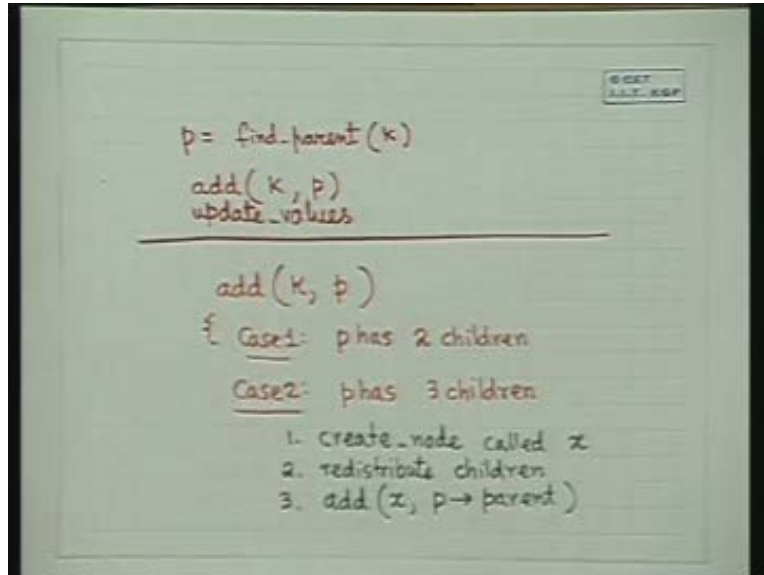 © CET
I.I.T. KGP
p = find_parent (K)
add (K, p)
update_values
add (K, p)
{ Case1: p has 2 children
Case2: p has 3 children
1. create_node called x
2. redistribute children
3. add (x, p → parent)